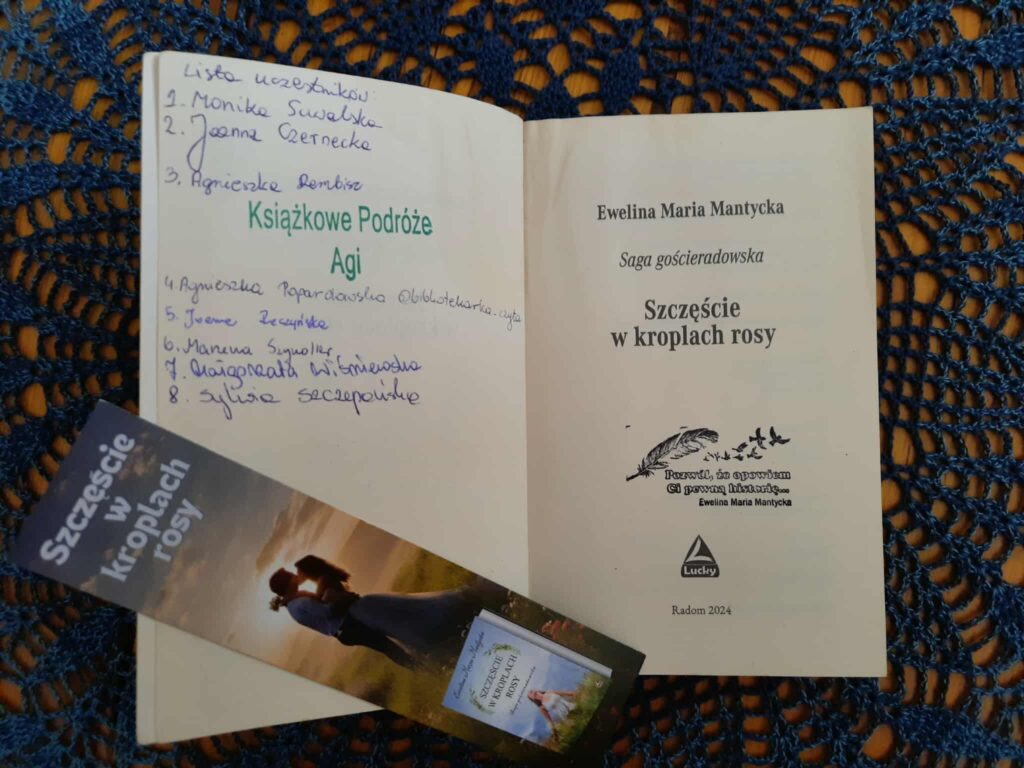 Lista uczestników:
1. Monika Suwalska
2. Joanna Czernecka
3. Agnieszka Rembisz
Książkowe Podróże
Agi
4. Agnieszka @bibliotekarka_czyta
5. Joanna
6. Marzena
7. Małgorzata Wiśniewska
8. Sylwia Szczepańska
Ewelina Maria Mantycka
Saga gościeradowska
Szczęście
w kroplach rosy
Pozwól, że opowiem
Ci pewną historię...
Ewelina Maria Mantycka
Lucky
Radom 2024
Szczęście
w
kroplach
rosy
Ewelina Maria Mantycka
SZCZĘŚCIE
W KROPLACH
ROSY